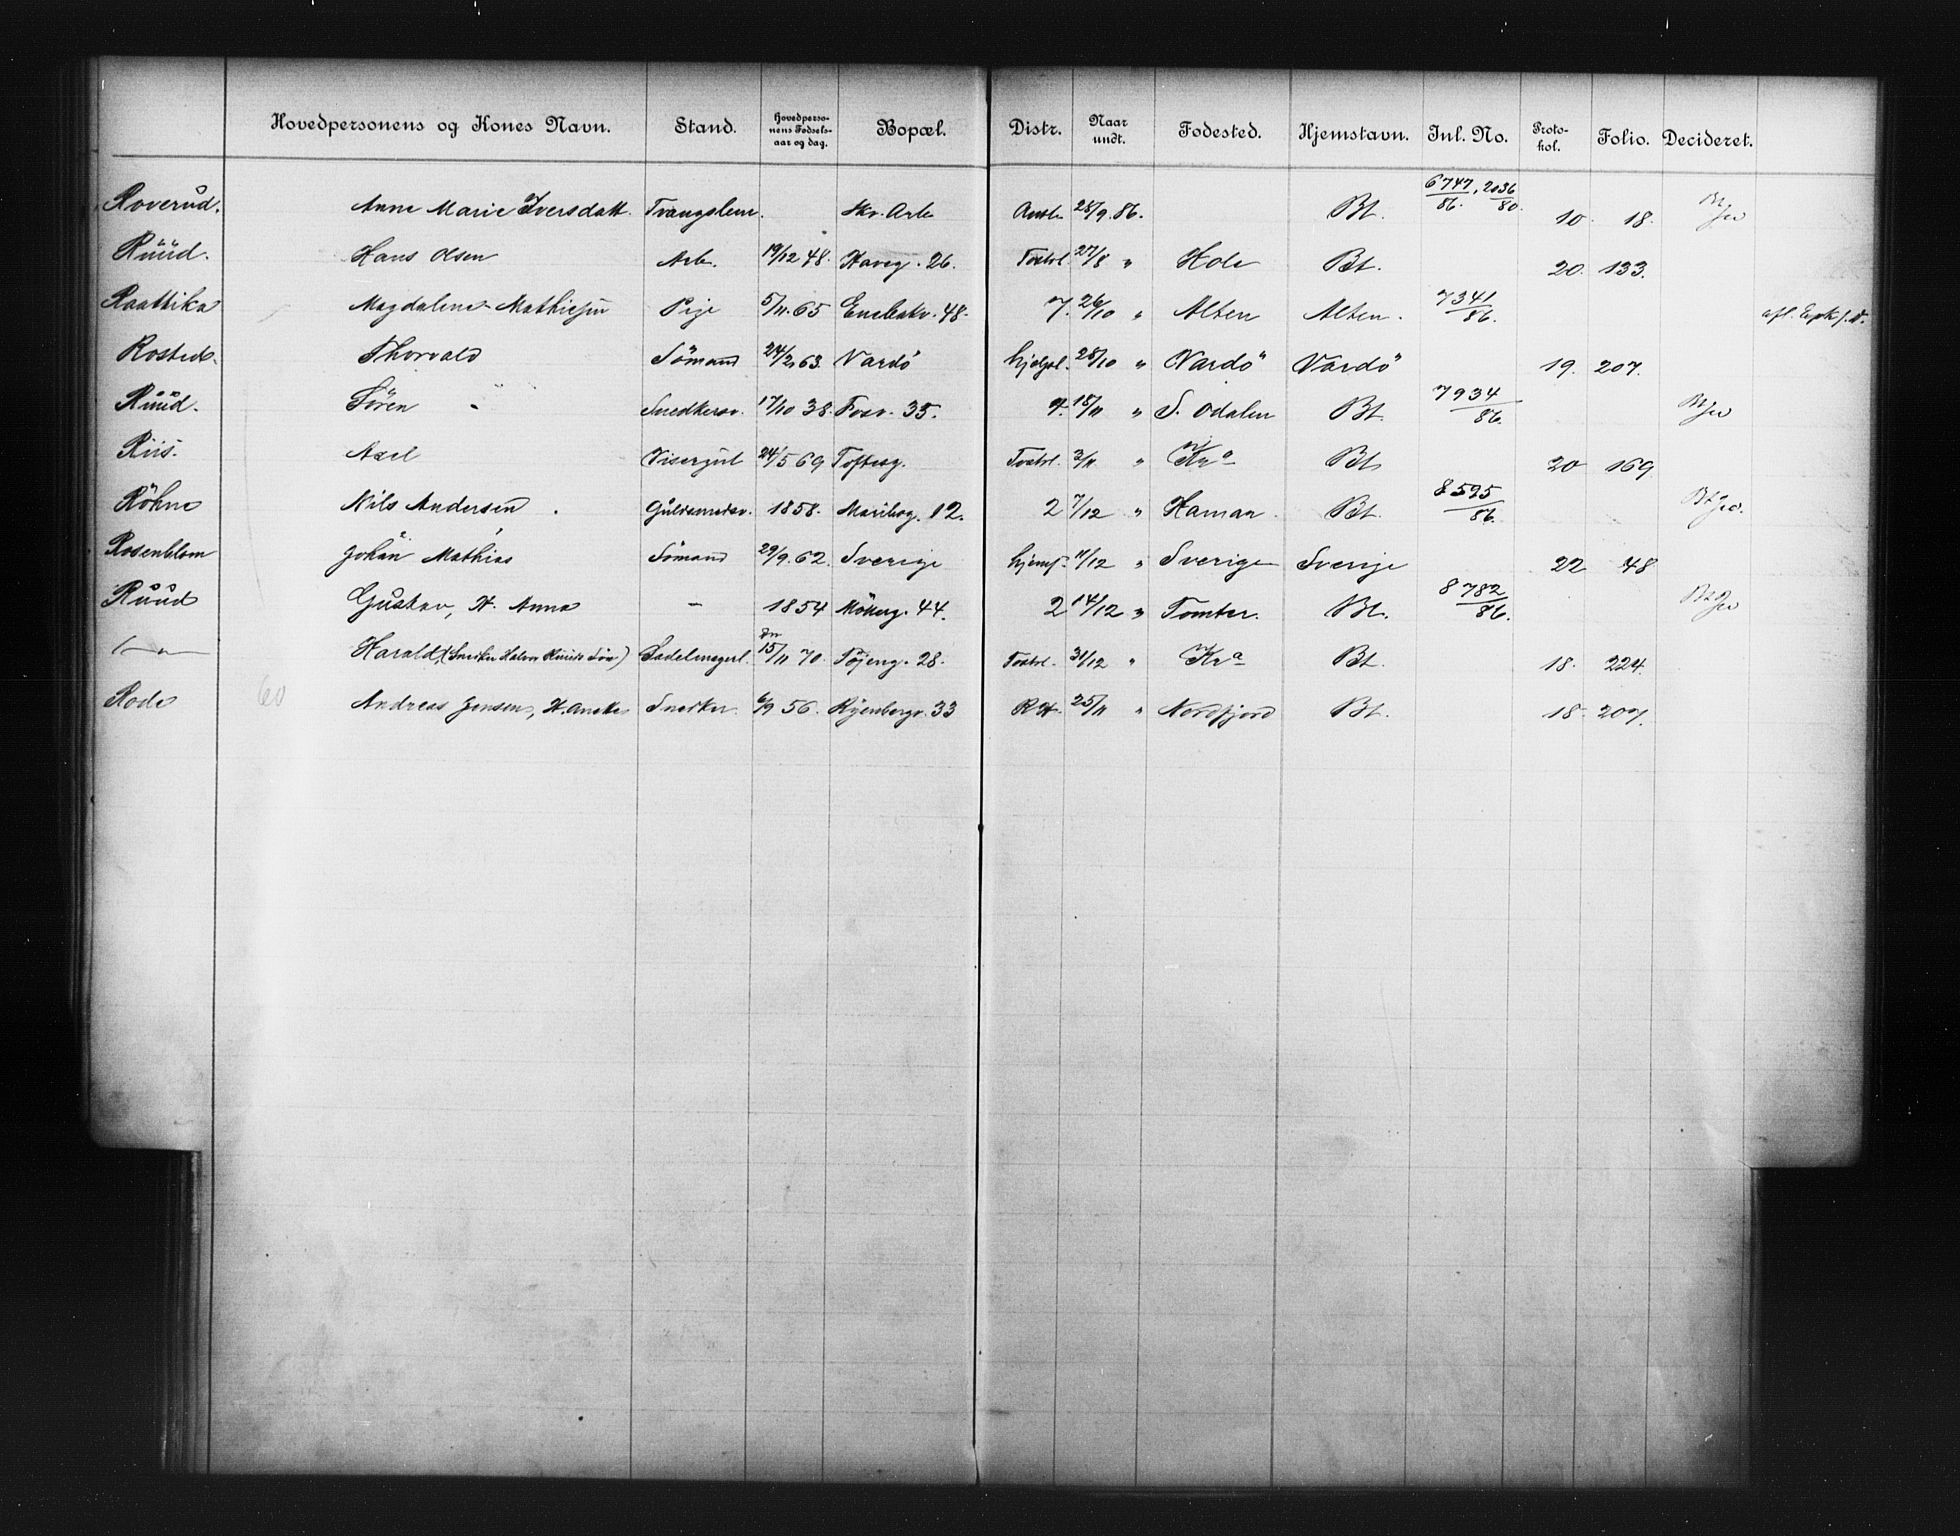 Hovedpersonens og Kones Navn. Stand. Hovedperso-nens Fødsels-aar og dag. Bopæl. Distr. Naar undt. Fødested. Hjemstavn. Inl. No. Proto-kol. Folio. Decideret.
Roverud. Anne Marie Iversdatt. Tvangslem. 28/9. 86. Bt. 6747/86. 2036/80. 10. 18.
Ruud. Hans Olsen Arb. 19/12 48. Haveg. 26. 27/8 " Hole Bt. 20. 133.
Raattika Magdalene Mathiesen Pige 5/11. 65 Enebakv. 48. 7. 26/10 " Alten Alten. 7341/86.
Rosted. Thorvald Sömand 24/2 63. Vardö 25/10 " Vardö Vardö 19. 207.
Ruud. Sören Snedkersv. 17/10 38. Fosv. 35. 7. 18/11 " S. Odalen Bt. 7934/86.
Riis. Axel Visergut 24/5 69 Tofteg. 3/11 " Kra Bt 20 169
Röhne Nils Andersen. Guldsmedsv. 1858. Maribog. 12. 2 7/12 " Hamar Bt. 8595/86.
Rosenblom Johan Mathias Sömand 29/9. 62. Sverige 11/12 " Sverige Sverige 22 48
Ruud Gustav, H. Anna – 1854 Mölleg. 44. 2 14/12 " Tomter. Bt. 8782/86.
—"— Harald (Snedker Halvor Ruuds Sön) Sadelmagerl. 15/11 70. Töjeng. 28. 31/12 " Kra Bt. 18. 224.
Rode 60 Andreas Jensen, H. Aneke Snedker. 6/9 56. Ryenbergv. 33 RH. 25/11 " Nordfjord Bt. 18. 207.